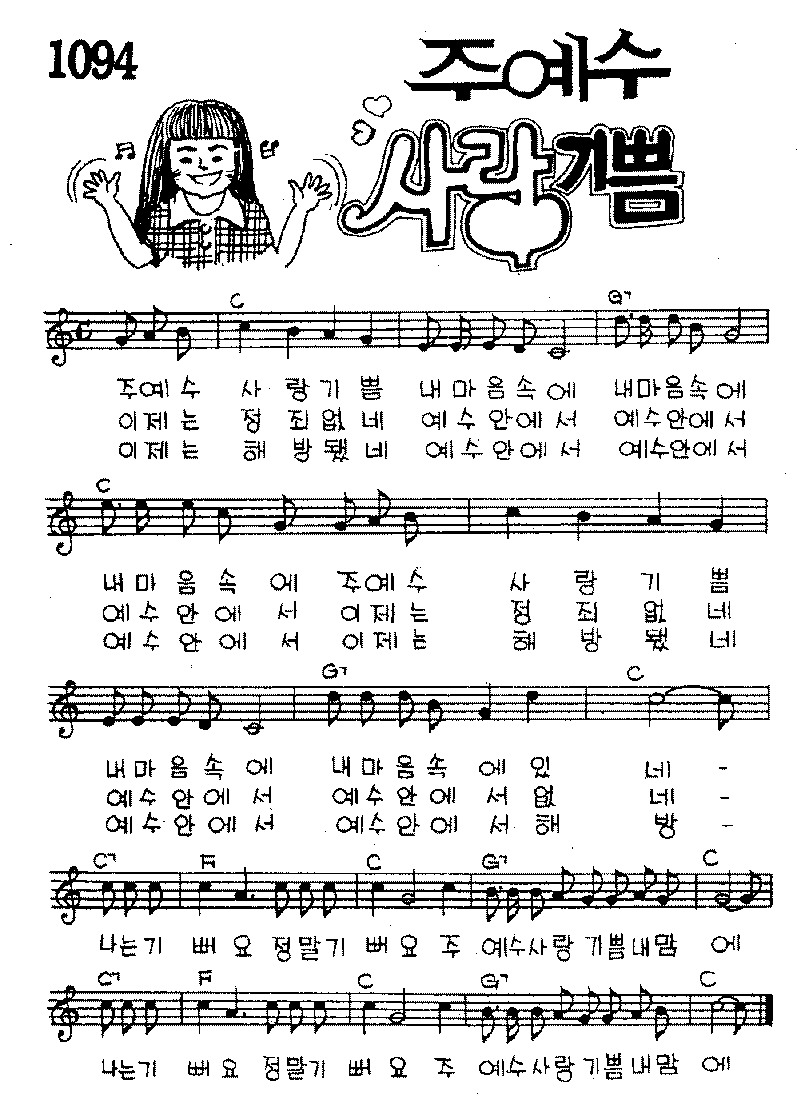 1094
주예수
사랑기쁨
C G7
주예수 사랑기쁨 내마음속에 내마음속에
이제는 정죄없네 예수안에서 예수안에서
이제는 해방됐네 예수안에서 예수안에서
C
내마음속에 주예수 사랑기쁨
예수안에서 이제는 정죄없네
예수안에서 이제는 해방됐네
G7 C
내마음속에 내마음속에있네-
예수안에서 예수안에서없네-
예수안에서 예수안에서해방-
C7 F C G7 C
나는기뻐요정말기뻐요주 예수사랑기쁨내맘에
C7 F C G7 C
나는기뻐요정말기뻐요주 예수사랑기쁨내맘에